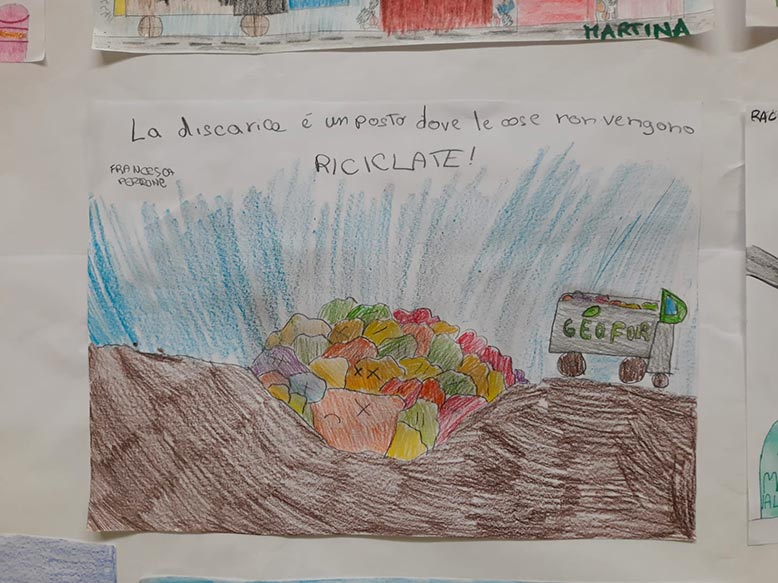 MARTINA
La discarica é un posto dove le cose non vengono
RICICLATE!
FRANCESCA
PERRONE
GÉOFOR